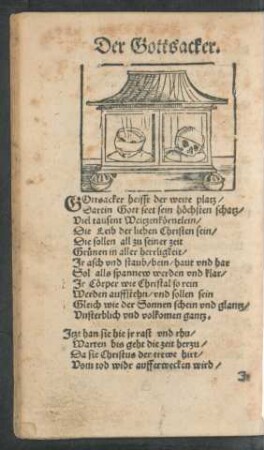 Der Gottsacker.
GOttsacker heisst der weite platz/
Darein Gott seet sein höchsten schatz/
Viel tausent Weitzenkörnelein/
Die Leib der lieben Christen sein/
Die sollen all zu seiner zeit
Grünen in aller herrligkeit/
Jr asch vnd staub/bein/haut vnd har
Sol alls spannew werden vnd klar/
Jr Cörper wie Christal so rein
Werden aufferstehn/vnd sollen sein
Gleich wie der Sonnen schein vnd glantz/
Vnsterblich vnd volkomen gantz.
Jetzt han sie hie jr rast vnd rhu/
Warten bis gehe die zeit herzu/
Da sie Christus der trewe hirt/
Vom tod widr aufferwecken wird/